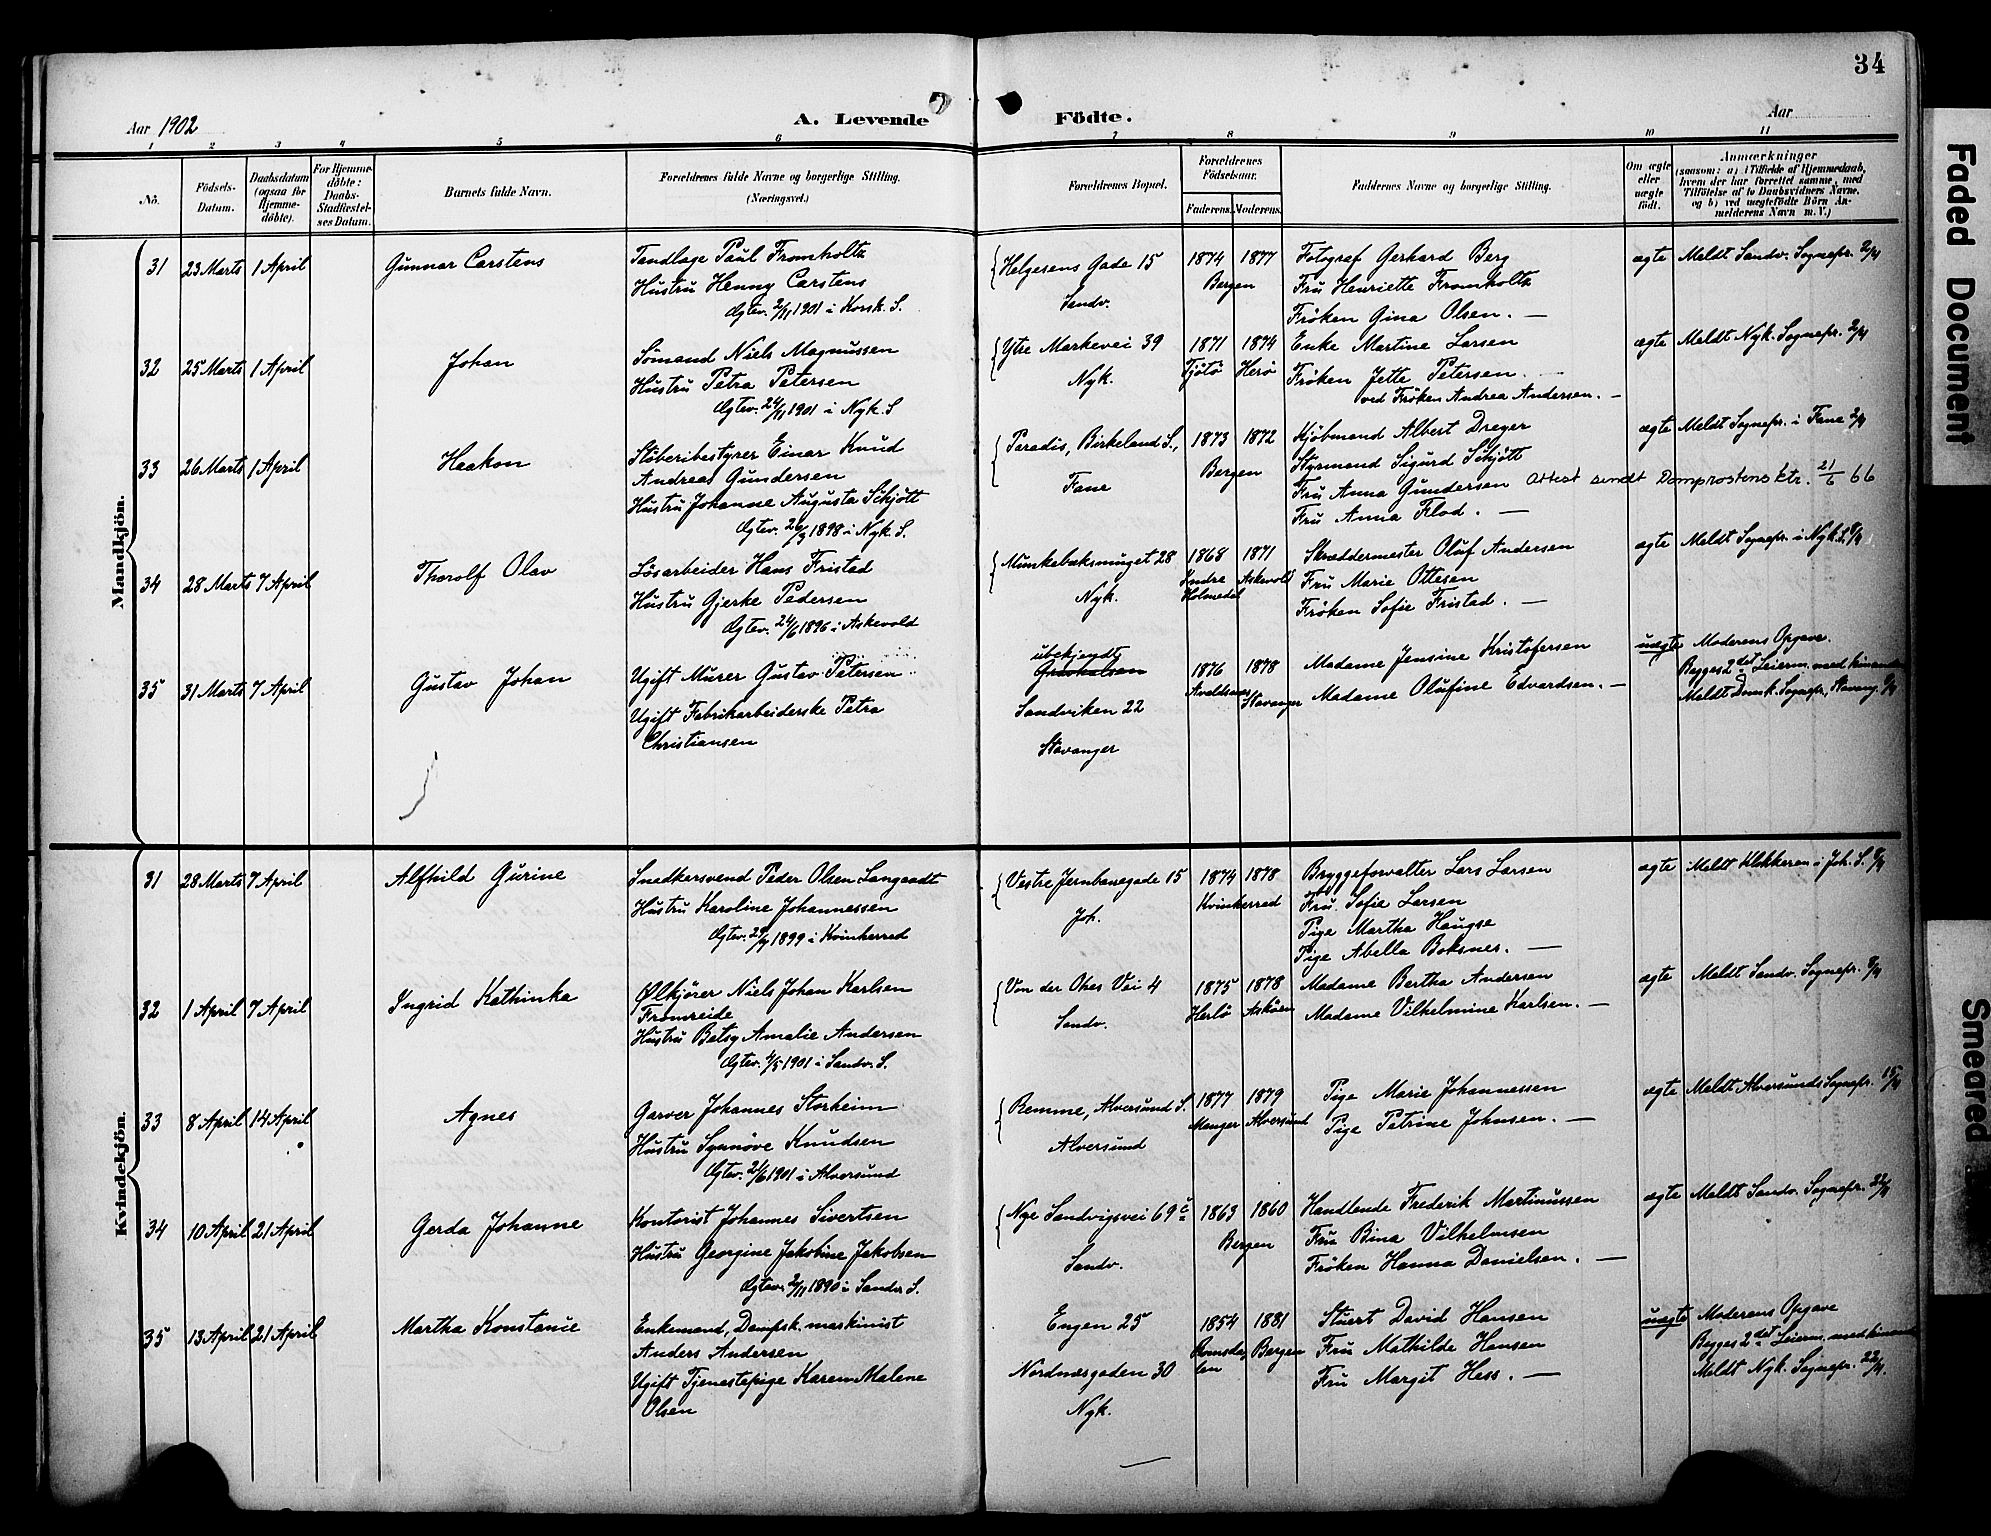 34
Aar 1902
A. Levende Födte.
Aar
1 2 3 4 5 6 7 8 9 10 11
No.
Födsels-Datum.
Daabsdatum (ogsaa for Hjemme-döbte).
For Hjemme-döbte: Daabs-Stadfæstel-ses Datum.
Barnets fulde Navn.
Forældrenes fulde Navne og borgerlige Stilling. (Næringsvei.)
Forældrenes Bopæl.
Forældrenes Födselsaar.
Faderens. Moderens.
Faddernes Navne og borgerlige Stilling.
Om ægte eller uægte födt.
Anmærkninger
(saasom: a) i Tilfælde af Hjemmedaab, hvem der har forrettet samme, med Tilföielse af to Daabsvidners Navne, og b) ved uægtefödte Börn An-melderens Navn m. V.)
Mandkjön.
31 23 Marts 1 April Gunnar Carstens
Tandlæge Paul Fromholtz
Hustru Henny Carstens
Ægtev. 2/11 1901 i Korsk. S.
Helgesens Gade 15
Sandv.
1874 1877
Bergen
Fotograf Gerhard Berg
Fru Henriette Fromholtz
Fröken Gina Olsen. —
ægte Meldt Sandv. Sognepr. 2/4
32 25 Marts 1 April Johan
Sömand Niels Magnussen
Hustru Petra Petersen
Ægtev. 24/11 1901 i Nyk. S
Ytre Markevei 39
Nyk.
1871 1874
Tjötö Herö
Enke Martine Larsen
Fröken Jette Petersen.
ved Fröken Andrea Andersen. —
ægte Meldt Nyk. Sognepr. 2/4
33 26 Marts 1 April Haakon
Stöberibestyrer Einar Knud
Andreas Gundersen
Hustru Johanne Augusta Schjött
Ægtev. 26/3 1898 i Nyk. S.
Paradis, Birkeland S.,
Fane
1873 1872
Bergen
Kjöbmand Albert Dreyer
Styrmand Sigurd Schjött
Fru Anna Gundersen
Fru Anna Flod. —
ægte Meldt Sognepr. i Fane 2/4
Attest sendt Domprostens ktr. 21/6 66
34 28 Marts 7 April Thorolf Olav
Lösarbeider Hans Fristad
Hustru Gjerke Pedersen
Ægtev. 24/6 1896 i Askevold
Munkebæksmuget 28
Nyk.
1868 1871
Indre Holmedal Askevold
Skræddermester Oluf Andersen
Fru Marie Ottesen
Fröken Sofie Fristad. —
ægte Meldt Sognepr. i Nyk. S. 8/4
35 31 Marts 7 April Gustav Johan
Ugift Murer Gustav Petersen
Ugift Fabrikarbeiderske Petra
Christiansen
ubekjendt
Sandviken 22
Stavanger
1876 1878
Avaldsnes Stavanger
Madame Jensine Kristofersen
Madame Olufine Edvardsen. —
uægte Moderens Opgave.
Begges 2det Leierm. med hinanden
Meldt Domk. Sognepr. Stavang. 8/4
Kvindekjön.
31 28 Marts 7 April Alfhild Gurine
Snedkersvend Peder Olsen Langaadt
Hustru Karoline Johannessen
Ægtev. 29/4 1899 i Kvinherred
Vestre Jernbanegade 15
Joh.
1874 1878
Kvinherred
Bryggeforvalter Lars Larsen
Fru Sofie Larsen
Pige Martha Haugse
Pige Abella Boksnes. —
ægte Meldt Klokkeren i Joh. S. 8/4
32 1 April 7 April Ingrid Kathinka
Ølkjörer Niels Johan Karlsen
Fromreide
Hustru Betsy Amalie Andersen
Ægtev. 4/5 1901 i Sandv. S.
Von der Ohes Vei 4
Sandv.
1875 1878
Herlö Asköen
Madame Bertha Andersen
Madame Vilhelmine Karlsen. —
ægte Meldt Sandv. Sognepr. 8/4
33 8 April 14 April Agnes
Garver Johannes Storheim
Hustru Synnöve Knudsen
Ægtev. 24/6 1901 i Alversund
Remme, Alversund S.
Alversund
1877 1879
Manger Alversund
Pige Marie Johannessen
Pige Petrine Johnsen. —
ægte Meldt Alversunds Sognepr. 15/4
34 10 April 21 April Gerda Johanne
Kontorist Johannes Sivertsen
Hustru Georgine Jakobine Jakobsen
Ægtev. 2/11 1890 i Sandv. S.
Nye Sandvigsvei 69 c
Sandv.
1863 1860
Bergen
Handlende Frederik Martinussen
Fru Bina Vilhelmsen
Fröken Hanna Danielsen. —
ægte Meldt Sandv. Sognepr. 22/4
35 13 April 21 April Martha Konstanse
Enkemand, Dampsk. maskinist
Anders Andersen
Ugift Tjenestepige Karen Malene
Olsen
Engen 25
Nordnæsgaden 30
Nyk.
1854 1881
Romsdalen Bergen
Stuert David Hansen
Fru Mathilde Hansen
Fru Margit Hess. —
uægte Moderens Opgave
Begges 2det Leierm. med hinand
Meldt Nyk. Sognepr. 22/4.
Faded Document
Smeared